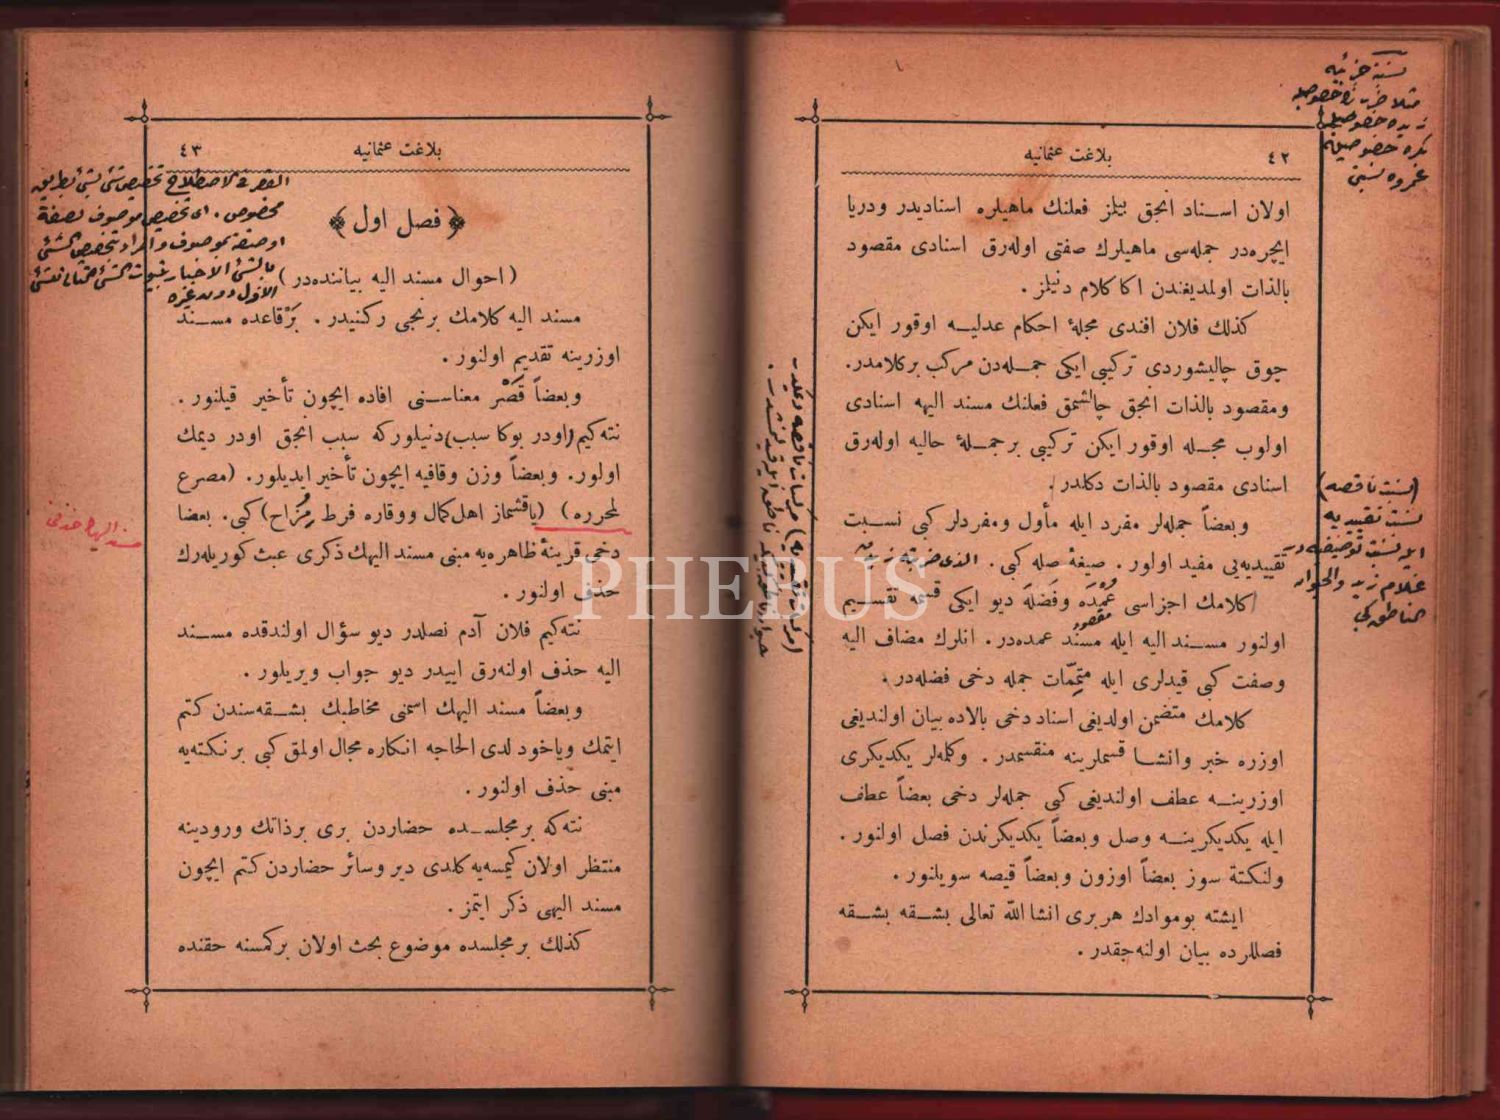 ٤٢
بلاغت عثمانیه
اولان اسناد انجق بیلنز فعلنك ماهیلره اسنادیدر ودریا
ایچره‌در جمله‌سی ماهیلرك صفتی اوله‌رق اسنادی مقصود
بالذات اولمدیغندن اکا کلام دنیلز .
کذلك فلان افندی مجلهٔ احکام عدلیه اوقور ایکن
چوق چالیشوردی ترکیبی ایکی جمله‌دن مرکب برکلامدر.
ومقصود بالذات انجق چالشمق فعلنك مسند الیهه اسنادی
اولوب مجله اوقور ایکن ترکیبی برجملهٔ حالیه اوله‌رق
اسنادی مقصود بالذات دکلدر .
وبعضاً جمله‌لر مفرد ایله مأول ومفردلر کبی نسبت
تقییدیه‌یی مفید اولور . صیغهٔ صله کبی .
کلامك اجزاسی عُمْدَه وفَضْلَه دیو ایکی قسمه تقسیم
اولنور مسند الیه ایله مسند عمده‌در . انلرك مضاف الیه
وصفت کبی قیدلری ایله متمِّمات جمله دخی فضله‌در .
کلامك متضمن اولدیغی اسناد دخی بالاده بیان اولندیغی
اوزره خبر وانشا قسملرینه منقسمدر . وکله‌لر یکدیکری
اوزرینه عطف اولندیغی کبی جمله‌لر دخی بعضاً عطف
ایله یکدیکرینه وصل وبعضاً یکدیکرندن فصل اولنور .
ولنکتة سوز بعضاً اوزون وبعضاً قیصه سویلنور .
ایشته بوموادك هربری انشا الله تعالی بشقه بشقه
فصللرده بیان اولنه‌جقدر .
(نسبت ناقصه)
نسبت تقییدیه
مقصود
بلاغت عثمانیه
٤٣
﴿ فصل اول ﴾
(احوال مسند الیه بیاننده‌در)
مسند الیه کلامك برنجی رکنیدر . برقاعده مسند
اوزرینه تقدیم اولنور .
وبعضاً قَصْر معناسنی افاده ایچون تأخیر قیلنور .
نته‌کیم (اودر بوکا سبب) دنیلورکه سبب انجق اودر دیمك
اولور. وبعضاً وزن وقافیه ایچون تأخیر ایدیلور. (مصرع
لمحرره) (یاقشماز اهل کمال ووقاره فرط مِزَاح) کبی. بعضا
دخی قرینهٔ ظاهره‌یه مبنی مسند الیهك ذکری عبث کوریله‌رك
حذف اولنور .
نته‌کیم فلان آدم نصلدر دیو سؤال اولندقده مسند
الیه حذف اولنه‌رق اییدر دیو جواب ویریلور .
وبعضاً مسند الیهك اسمنی مخاطبك بشقه‌سندن کتم
ایتمك ویاخود لدی الحاجه انکاره مجال اولمق کبی برنکته‌یه
مبنی حذف اولنور .
نته‌که برمجلسده حضاردن بری برذاتك ورودینه
منتظر اولان کیمسه‌یه کلدی دیر وسائر حضاردن کتم ایچون
مسند الیهی ذکر ایتمز .
کذلك برمجلسده موضوع بحث اولان برکمسنه حقنده
PHEBUS